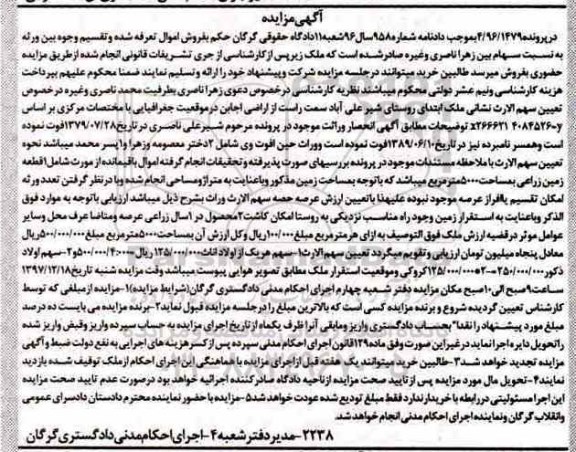 آگهی مزایده
درپرونده ۴/۹۶/۱۴۷۹ بموجب دادنامه شماره ۹۵۸ سال ۹۶ شعبه ۱۱ دادگاه حقوقی گرگان حکم بفروش اموال تعرفه شده وتقسیم وجوه بین ورثه
به نسبت سهام بین زهرا ناصری وغیره صادرشده است که ملک زیرپس ازکارشناسی از جری تشریفات قانونی انجام شده ازطریق مزایده
حضوری بفروش میرسد طالبین خرید میتوانند درجلسه مزایده شرکت وپیشنهاد خود را ارائه وتسلیم نمایند ضمنا محکوم علیهم بپرداخت
هزینه کارشناسی ونیم عشر دولتی محکوم میباشند نظریه کارشناسی درخصوص دعوی زهرا ناصری بطرفیت محمد ناصری وغیره درخصوص
تعیین سهم الارث نشانی ملک ابتدای روستای شیر علی آباد سمت راست از اراضی اجابن درموقعیت جغرافیایی با مختصات مرکزی بر اساس
x۲۶۶۶۲۱ ۴۰۸۴۵۲۶=y توضیحات مطابق آگهی انحصار وراثت موجود در پرونده مرحوم شیرعلی ناصری در تاریخ ۱۳۷۹/۰۷/۲۸ فوت نموده
است وهمسر نامبرده نیز در تاریخ ۱۳۸۹/۰۶/۱۰ فوت نموده است ووراث حین افوت وی شامل ۲ دختر معصومه وزهرا و۱ پسر محمد میباشد نحوه
تعیین سهم الارث با ملاحظه مستندات موجود در پرونده بررسیهای صورت پذیرفته وتحقیقات انجام گرفته اموال باقیمانده از مورث شامل ۱ قطعه
زمین زراعی بمساحت ۵۰۰۰ مترمربع میباشد که باتوجه بمساحت زمین مذکور وباعنایت به متراژ ومساحی انجام شده با در نظر گرفتن تعدد ورثه
امکان تقسیم یاافراز عرصه موجود نبوده علیهذا باتعیین ارزش عرصه حصه سهم الارث وراث بشرح ذیل میباشد ارزیابی باتوجه به موارد فوق
الذکر وباعنایت به استقرار زمین وجود راه مناسب نزدیکی به روستا امکان کاشت ۲ محصول در ۱ سال زراعی عرصه ومنافا عرف محل وسایر
عوامل موثر در قضیه ارزش ملک فوق التوصیف به ازای هر مترمربع مبلغ ۱۰۰/۰۰۰ ریال وکل ارزش آن بمساحت ۵۰۰۰ مترمربع مبلغ ۵۰۰/۰۰۰/۰۰۰ ریال
معادل پنجاه میلیون تومان ارزیابی و تقویم میگردد تعیین سهم الارث ۱-سهم هریک از اولاد اناث ۱۲۵/۰۰۰/۰۰۰ ریال ۵۰۰/۰۰۰/۰۰۰:۴ و۲-سهم اولاد
ذکور ۲۵۰/۰۰۰/۰۰۰=۲×۱۲۵/۰۰۰/۰۰۰ کروکی وموقعیت استقرار ملک مطابق تصویر هوایی پیوست میباشد وقت مزایده شنبه تاریخ ۱۳۹۷/۱۲/۱۸
ساعت ۹ صبح الی ۱۰ صبح مکان مزایده دفتر شعبه چهارم اجرای احکام مدنی دادگستری گرگان (شرایط مزایده) ۱-مزایده از مبلغی که توسط
کارشناس تعیین گردیده شروع و برنده مزایده کسی است که بالاترین مبلغ را درجلسه مزایده قبول نماید ۲-برنده مزایده می بایست ده درصد
مبلغ مورد پیشنهاد را نقدا" بحساب دادگستری واریز ومابقی آنرا ظرف یکماه از تاریخ اجرای مزایده به حساب سپرده واریز وقبض واریز شده
را تحویل دایره اجرا نماید درغیراین صورت وفق ماده ۱۲۹ قانون اجرای احکام مدنی سپرده پس از کسر هزینه های اجرایی به نفع دولت ضبط و آگهی
مزایده تجدید خواهد شد ۳-طالبین خرید میتوانند یک هفته قبل از اجرای مزایده با هماهنگی این اجرای احکام از ملک توقیف شده بازدید
نمایند ۴-تحویل مال مورد مزایده پس از تایید صحت مزایده از ناحیه دادگاه صادرکننده اجرائیه خواهد بود درصورت عدم تایید صحت مزایده
این اجرا مسئولیتی در رابطه با خریدار ندارد فقط مبلغ تودیع شده عودت خواهد شد ۵-مزایده با حضور نماینده محترم دادستان دادسرای عمومی
وانقلاب گرگان ونماینده اجرای احکام مدنی انجام خواهدشد.
۲۲۳۸-مدیر دفتر شعبه ۴-اجرای احکام مدنی دادگستری گرگان